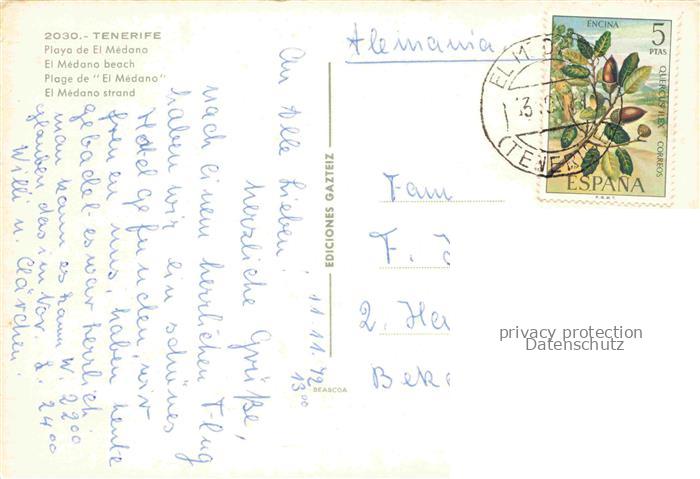 2030.- TENERIFE
Playa de El Médano
El Médano beach
Plage de "El Médano"
El Médano strand
An Alle Lieben!
11.11.72
13 00
Herzliche Grüße,
nach einem herrlichen Flug
haben wir ein schönes
Hotel gefunden, wir
freuen uns, haben heute
gebadet - es war herrlich
man kann es kaum W. 22 00
glauben das im Nov. L. 24 00
Willi u. Clärchen.
EDICIONES GAZTEIZ
BEASCOA
Alemania
Fam
F.
2. Ha
Bek
EL
(TENERI
ENCINA
5
PTAS
QUERCUS ILEX
CORREOS
ESPAÑA
F.N.M.T.
privacy protection
Datenschutz